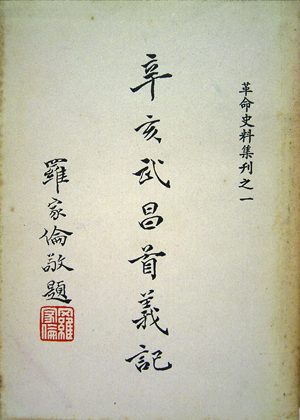 革命史料集刊之一
辛亥武昌首義記
羅家倫敬題
羅家倫